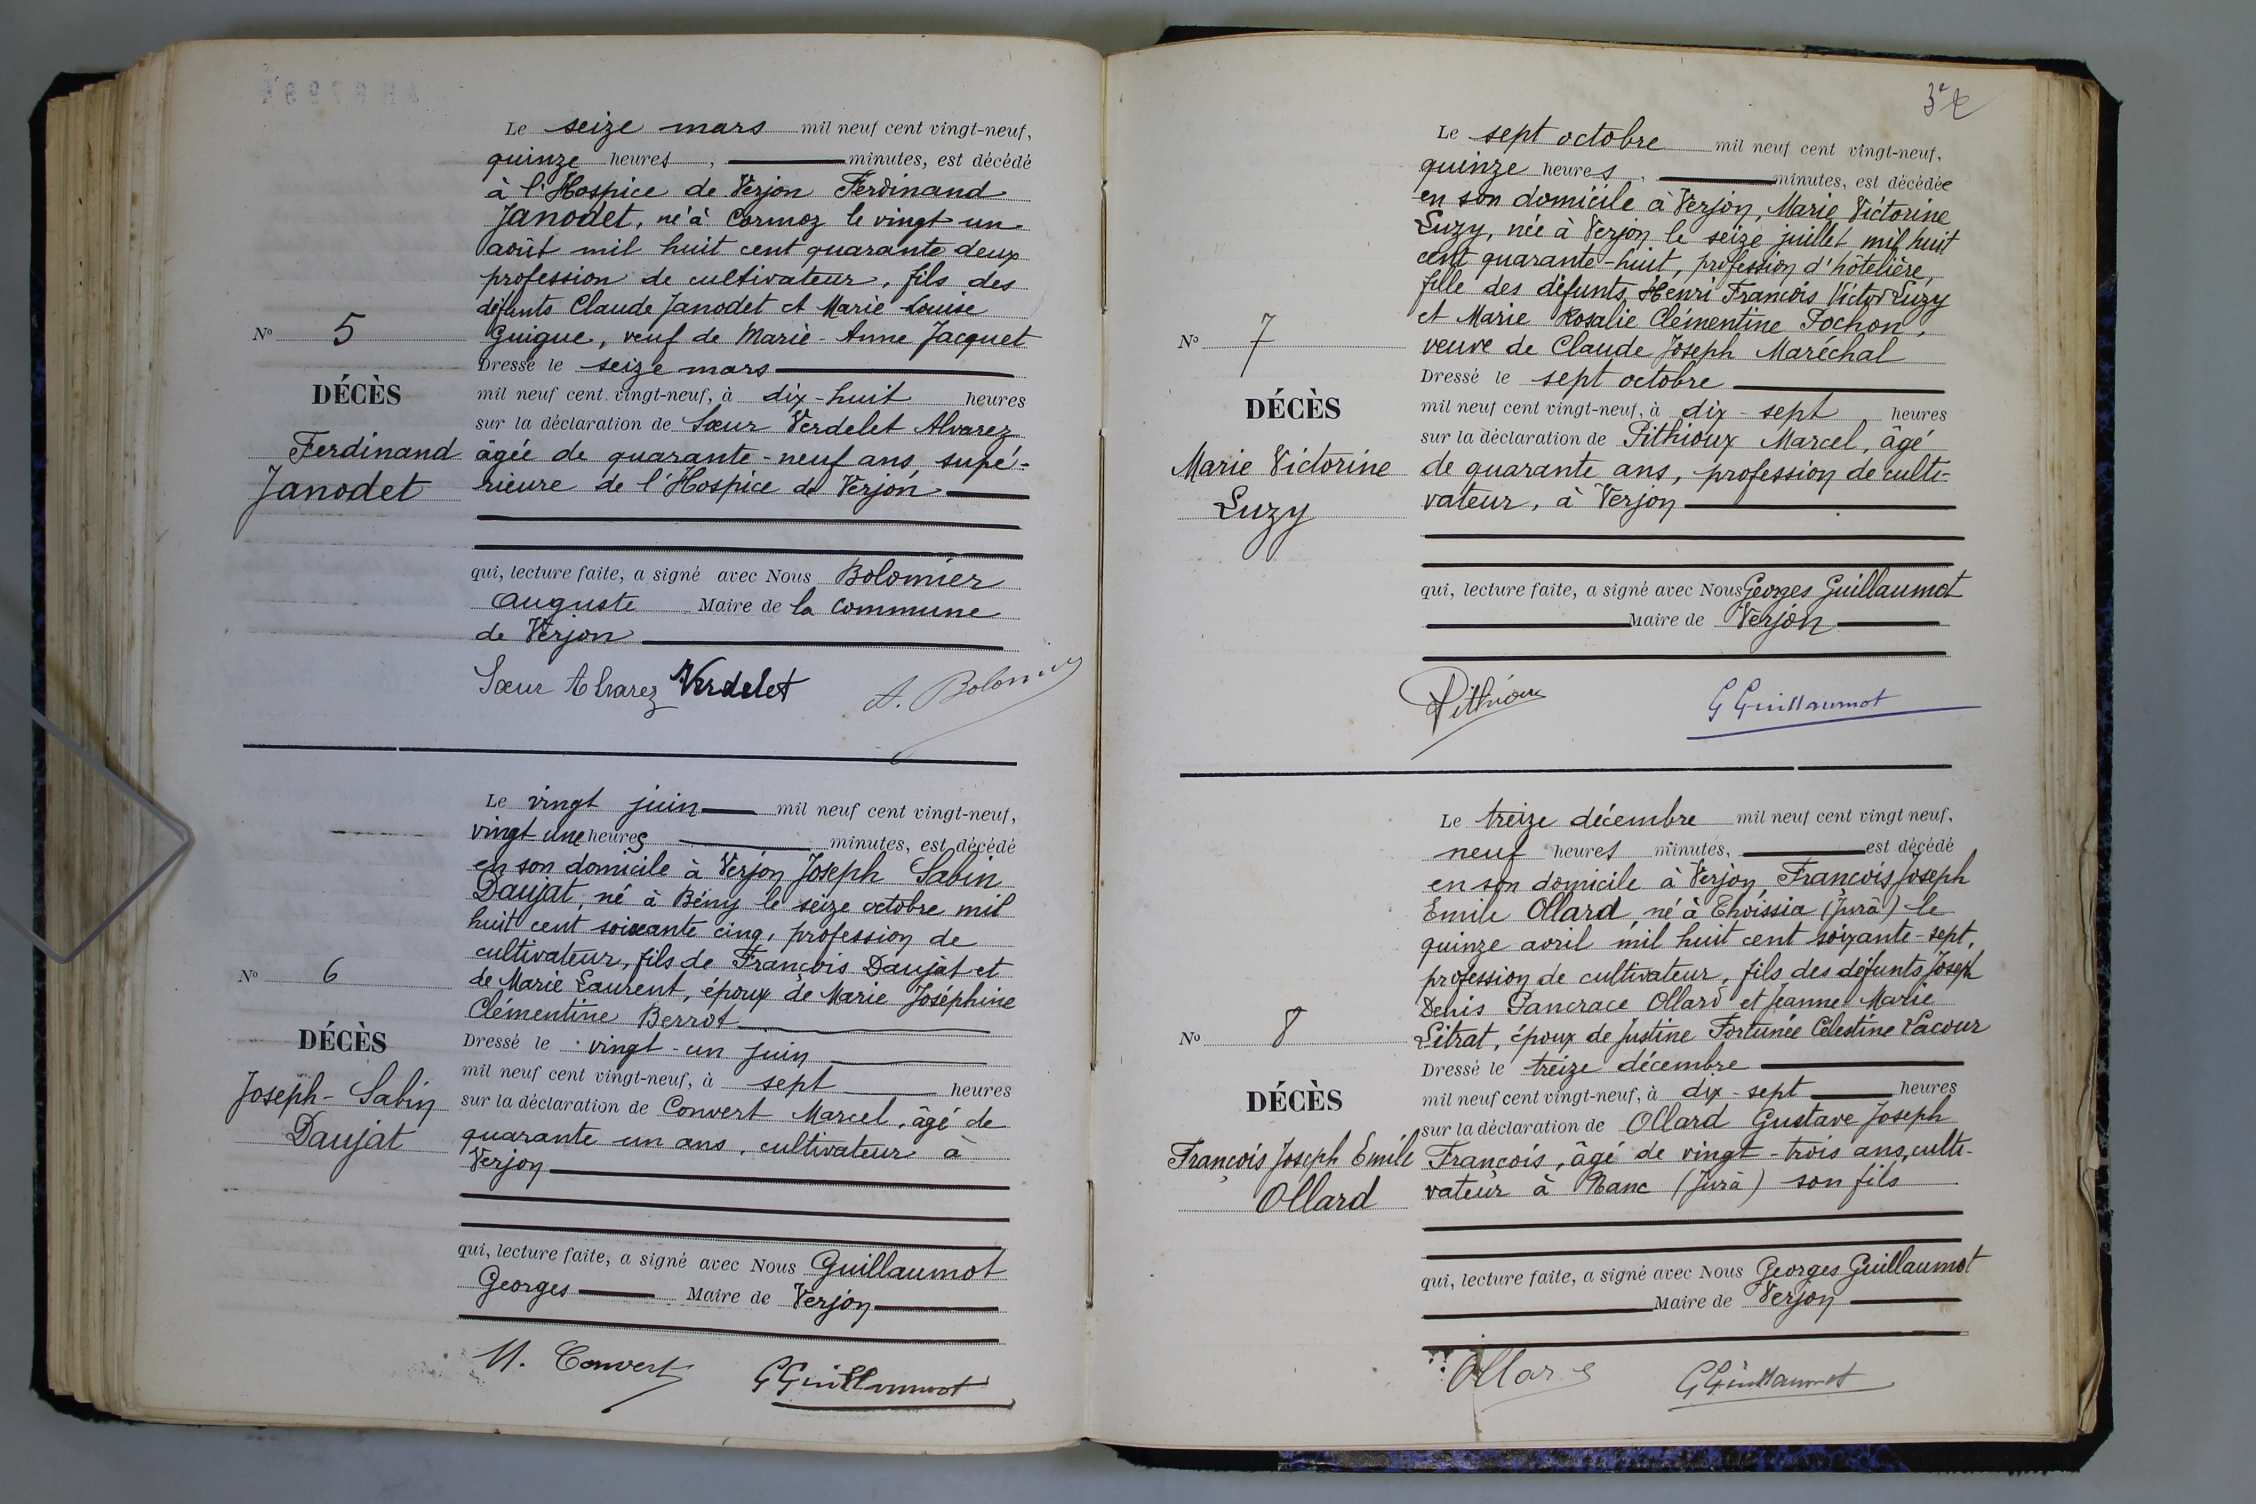 Le seize mars mil neuf cent vingt-neuf,
quinze heures, minutes, est décédé
à l'Hospice de Verjon Ferdinand
Janodet, né à Cormoz le vingt un
août mil huit cent quarante deux
profession de cultivateur, fils des
défunts Claude Janodet et Marie Louise
Guigue, veuf de Marie-Anne Jacquet
Dressé le seize mars
mil neuf cent vingt-neuf, à dix-huit heures
sur la déclaration de Sœur Verdelet Alvarez
âgée de quarante-neuf ans, supé-
rieure de l'Hospice de Verjon
qui, lecture faite, a signé avec Nous Bolomier
Auguste Maire de la commune
de Verjon
Sœur Alvarez Verdelet A. Bolomier
N° 5
DÉCÈS
Ferdinand
Janodet
Le vingt juin mil neuf cent vingt-neuf,
vingt une heures minutes, est décédé
en son domicile à Verjon Joseph Sabin
Daujat, né à Bény le seize octobre mil
huit cent soixante cinq, profession de
cultivateur, fils de François Daujat et
de Marie Laurent, époux de Marie Joséphine
Clémentine Berrot
Dressé le vingt-un juin
mil neuf cent vingt-neuf, à sept heures
sur la déclaration de Convert Marcel, âgé de
quarante un ans, cultivateur à
Verjon
qui, lecture faite, a signé avec Nous Guillaumot
Georges Maire de Verjon
M. Convert G Guillaumot
N° 6
DÉCÈS
Joseph-Sabin
Daujat
3e
Le sept octobre mil neuf cent vingt-neuf,
quinze heures, minutes, est décédée
en son domicile à Verjon, Marie Victorine
Luzy, née à Verjon le seize juillet mil huit
cent quarante-huit, profession d'hôtelière,
fille des défunts Henri François Victor Luzy
et Marie Rosalie Clémentine Pochon,
veuve de Claude Joseph Maréchal
Dressé le sept octobre
mil neuf cent vingt-neuf, à dix-sept heures
sur la déclaration de Pithioux Marcel, âgé
de quarante ans, profession de culti-
vateur, à Verjon
qui, lecture faite, a signé avec Nous Georges Guillaumot
Maire de Verjon
Pithioux G Guillaumot
N° 7
DÉCÈS
Marie Victorine
Luzy
Le treize décembre mil neuf cent vingt neuf,
neuf heures minutes, est décédé
en son domicile à Verjon François Joseph
Emile Ollard, né à Thoissia (Jura) le
quinze avril mil huit cent soixante-sept,
profession de cultivateur, fils des défunts Joseph
Denis Pancrace Ollard et Jeanne Marie
Litrat, époux de Justine Fortunée Célestine Lacour
Dressé le treize décembre
mil neuf cent vingt-neuf, à dix-sept heures
sur la déclaration de Ollard Gustave Joseph
François, âgé de vingt-trois ans, culti-
vateur à Nanc (Jura) son fils
qui, lecture faite, a signé avec Nous Georges Guillaumot
Maire de Verjon
Ollard G Guillaumot
N° 8
DÉCÈS
François Joseph Emile
Ollard